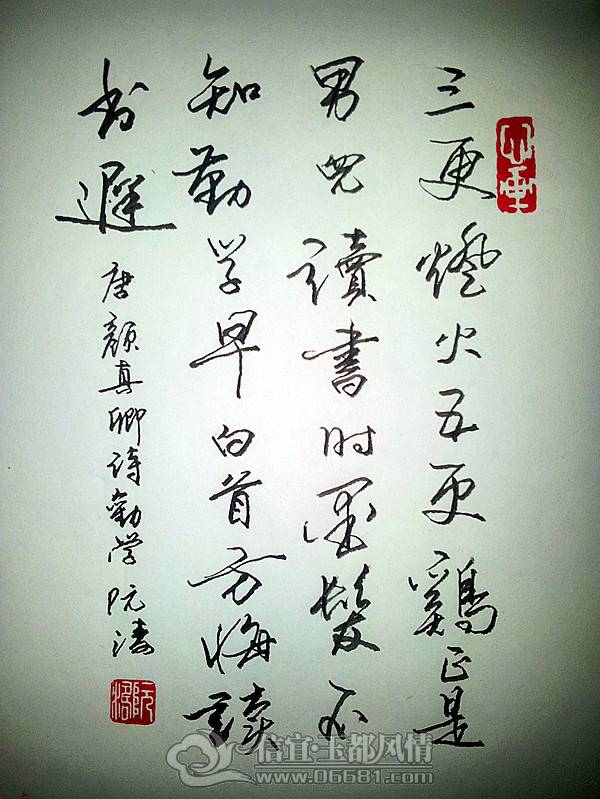 三更燈火五更鷄正是
男兒讀書时黑髮不
知勤学早白首方悔读
书遲
唐顔真卿诗勸学 阮涛
信宜·玉都风情
www.06681.com